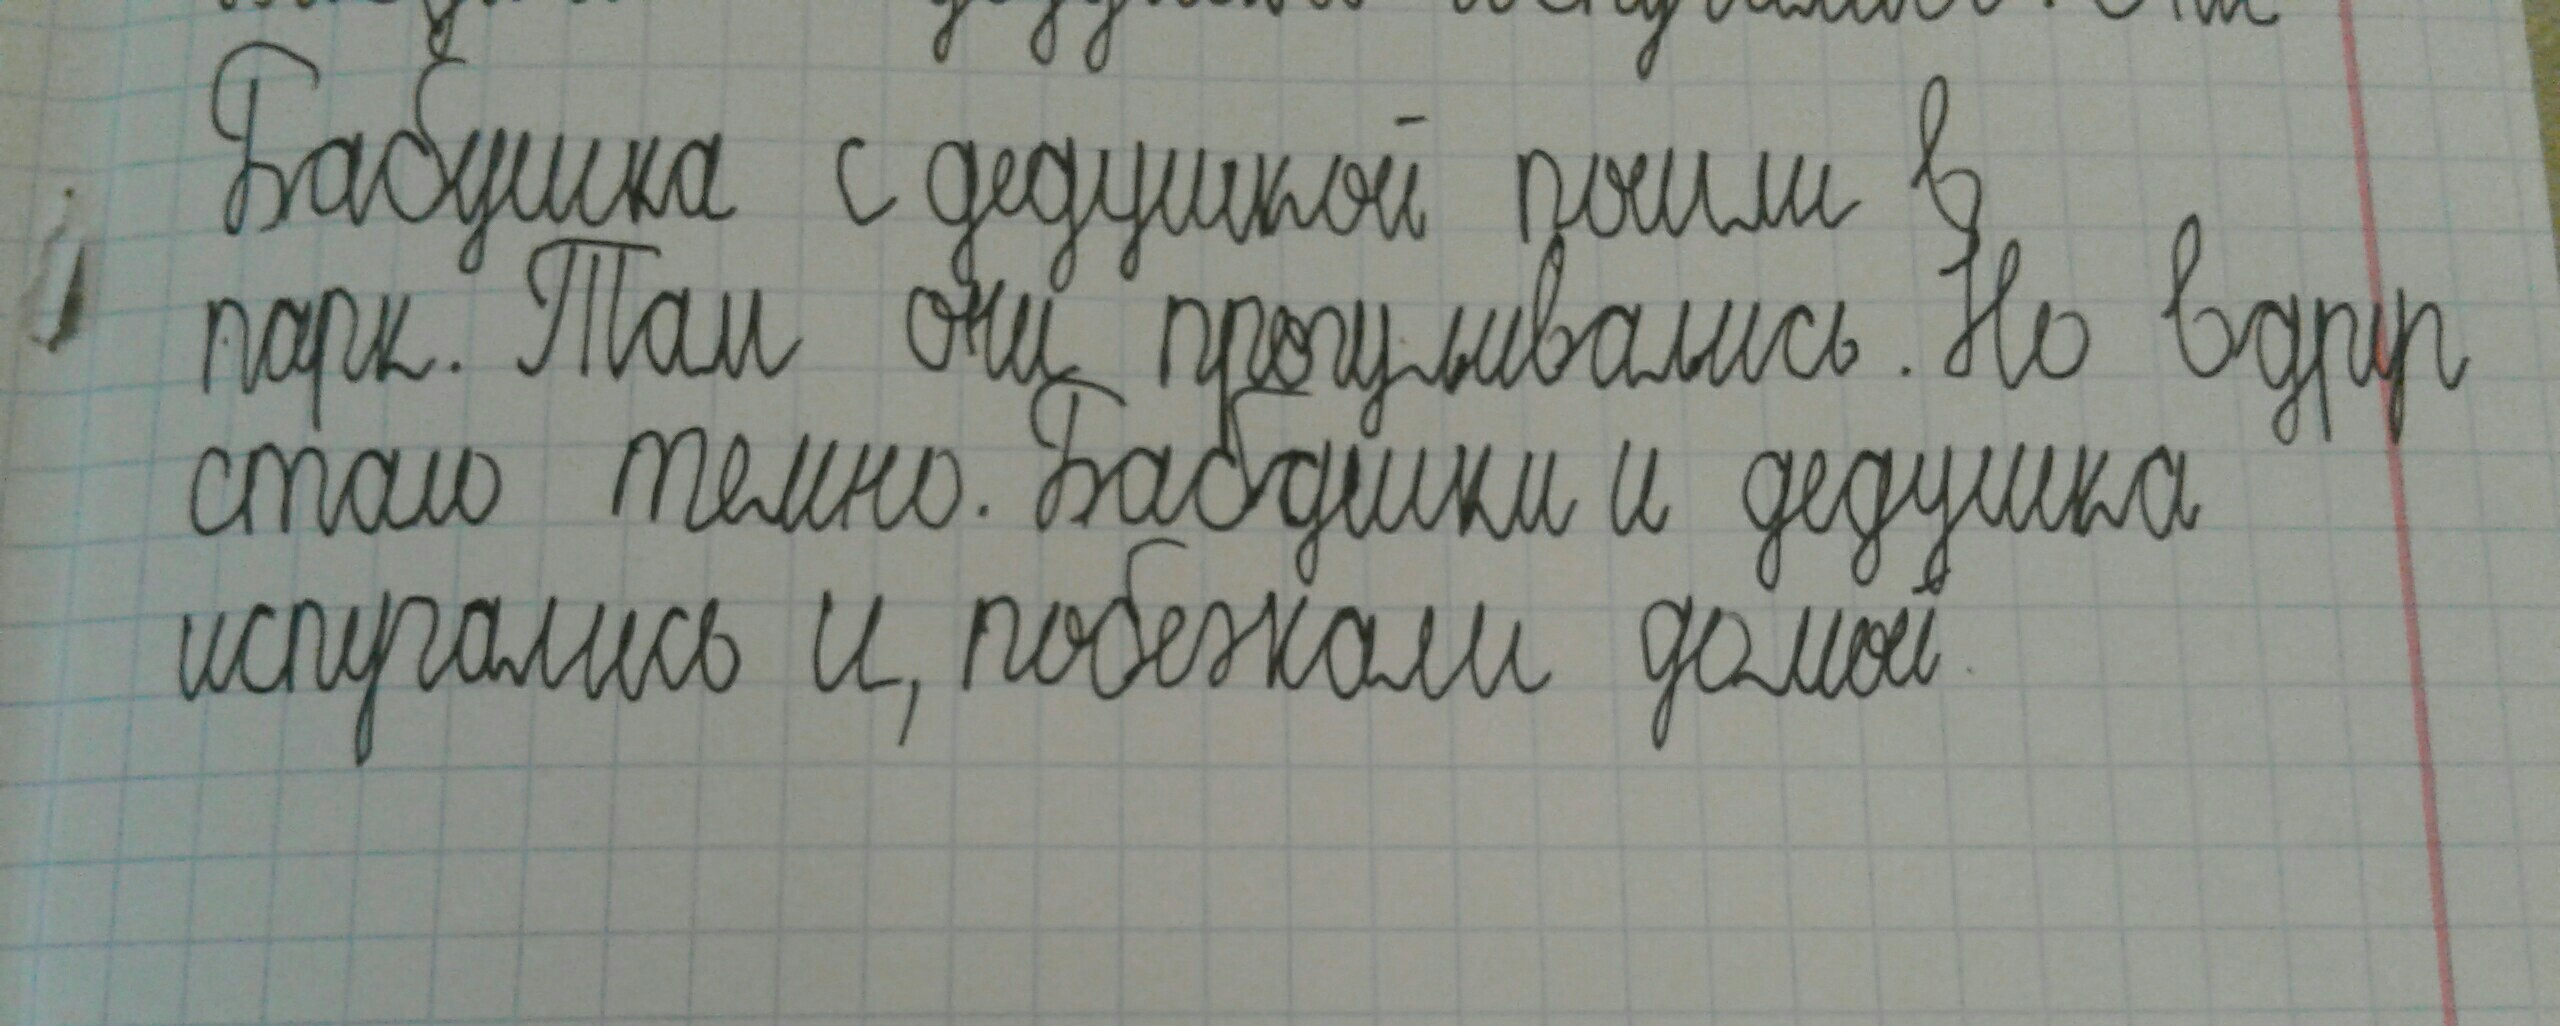 Бабушка с дедушкой пошли в
парк. Там они прогуливались. Но вдруг
стало темно. Бабушки и дедушка
испугались и, побежали домой.